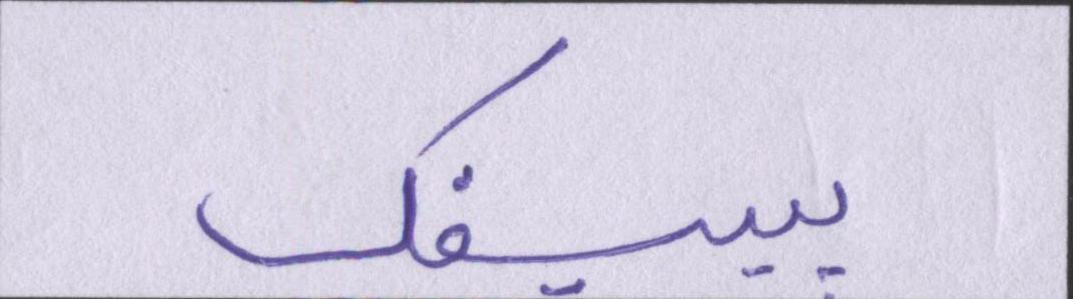 پیسیفک